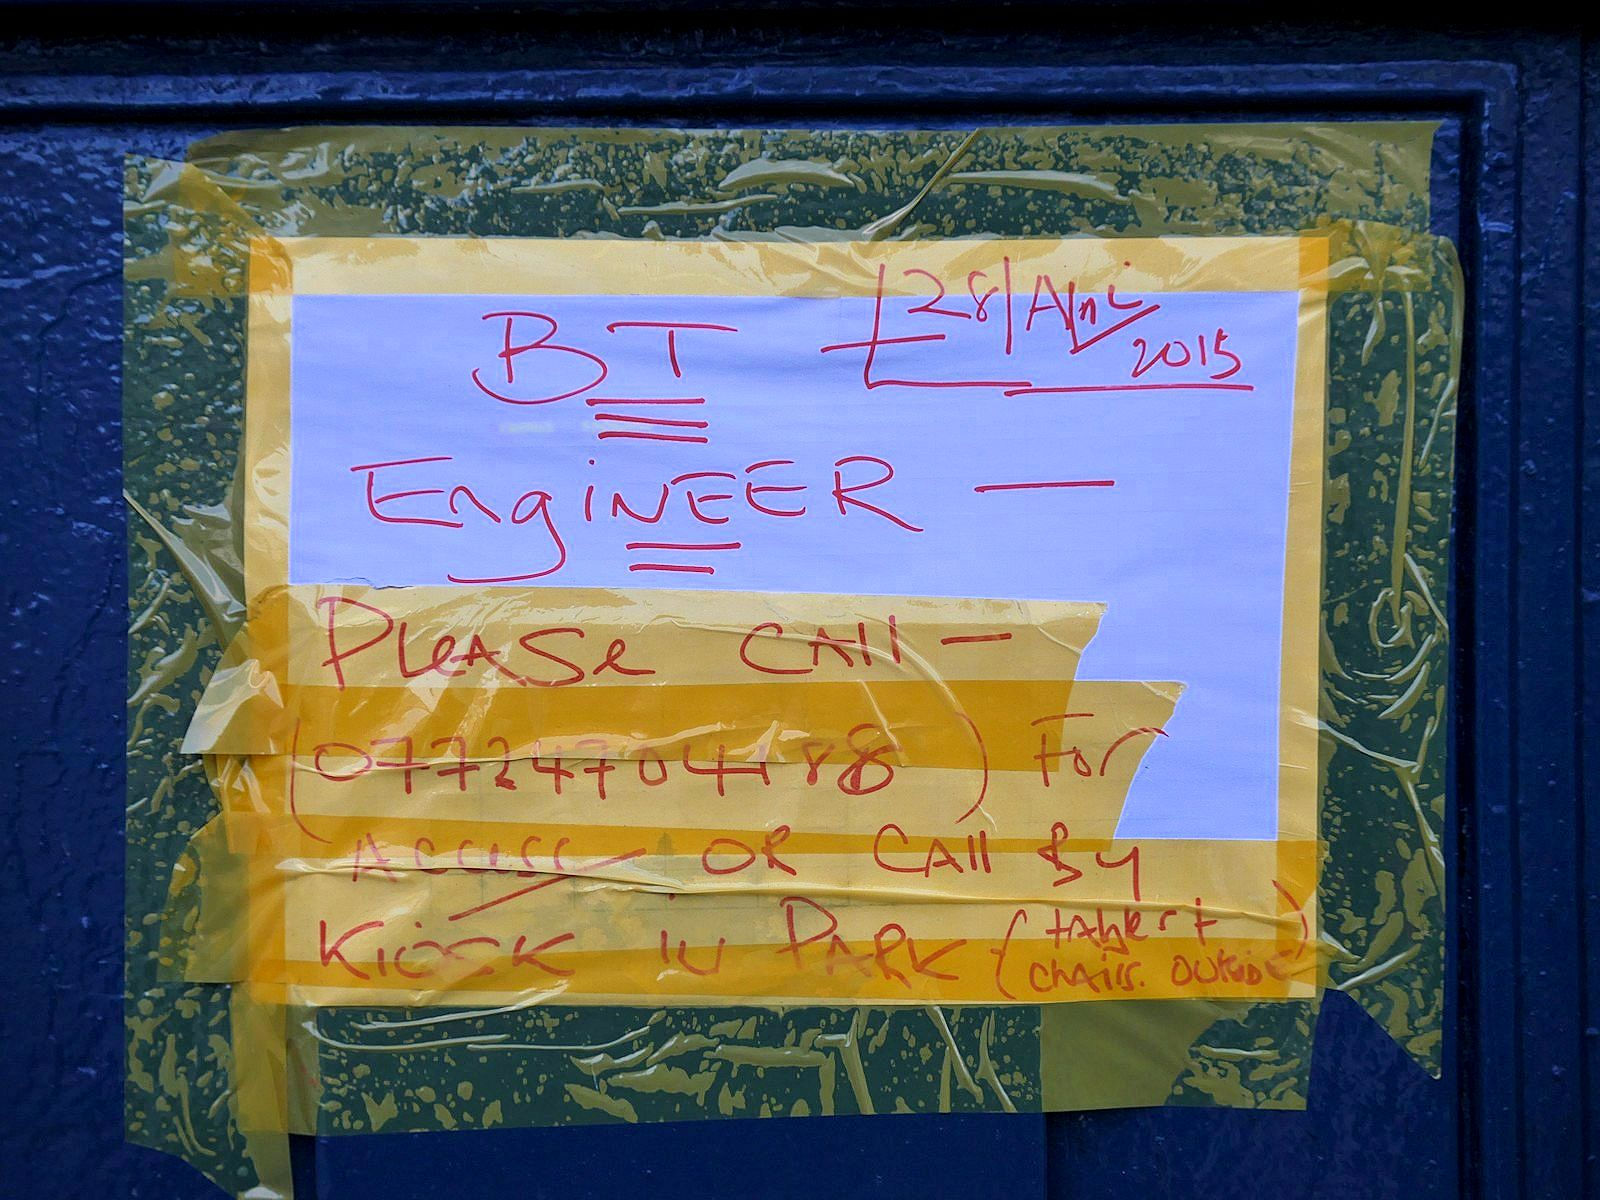 BT
28/April 2015
EngiNEER —
PLeASe CAll —
(07724704188) For
Access OR CAll By
KiOSK iN PARK (tables +
chairs. outside)